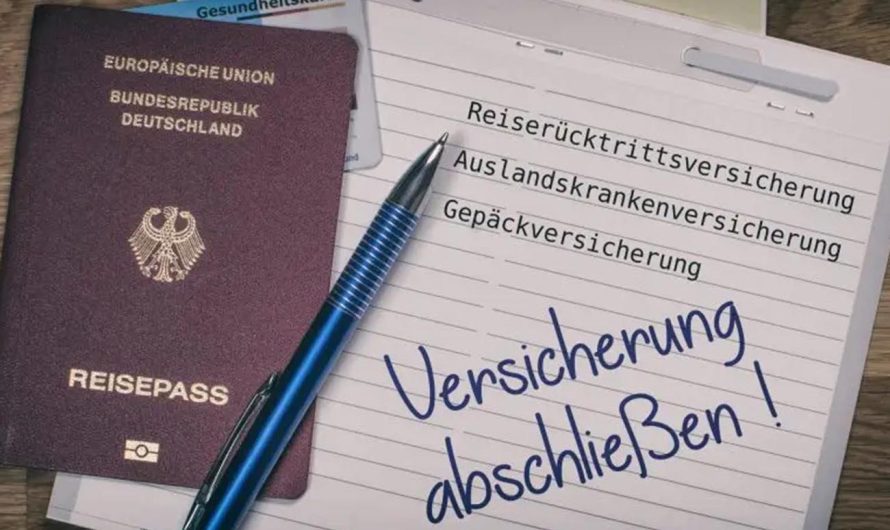 Gesundheitska
EUROPÄISCHE UNION
BUNDESREPUBLIK
DEUTSCHLAND
REISEPASS
Reiserücktrittsversicherung
Auslandskrankenversicherung
Gepäckversicherung
Versicherung
abschließen !